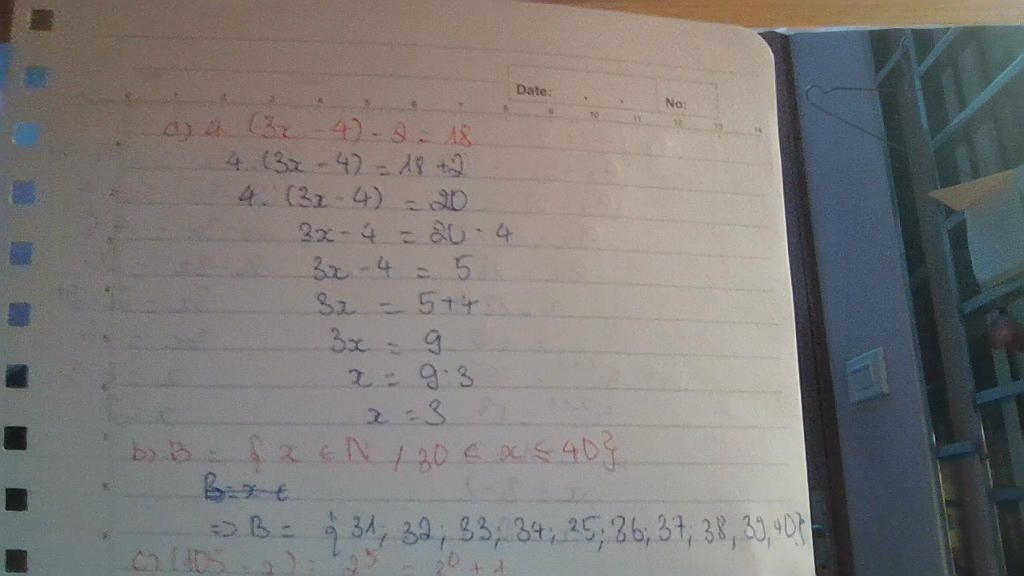 Date: No:
0 1 2 3 4 5 6 7 8 9 10 11 12 13 14
a) 4. (3x - 4) - 2 = 18
4. (3x - 4) = 18 + 2
4. (3x - 4) = 20
3x - 4 = 20 : 4
3x - 4 = 5
3x = 5 + 4
3x = 9
x = 9 : 3
x = 3
b) B = { x ∈ N / 30 < x ≤ 40}
B = x ∈
=> B = { 31; 32; 33; 34; 35; 36; 37; 38, 39, 40}
c) (105 - x) : 2⁵ = 3⁰ + 1